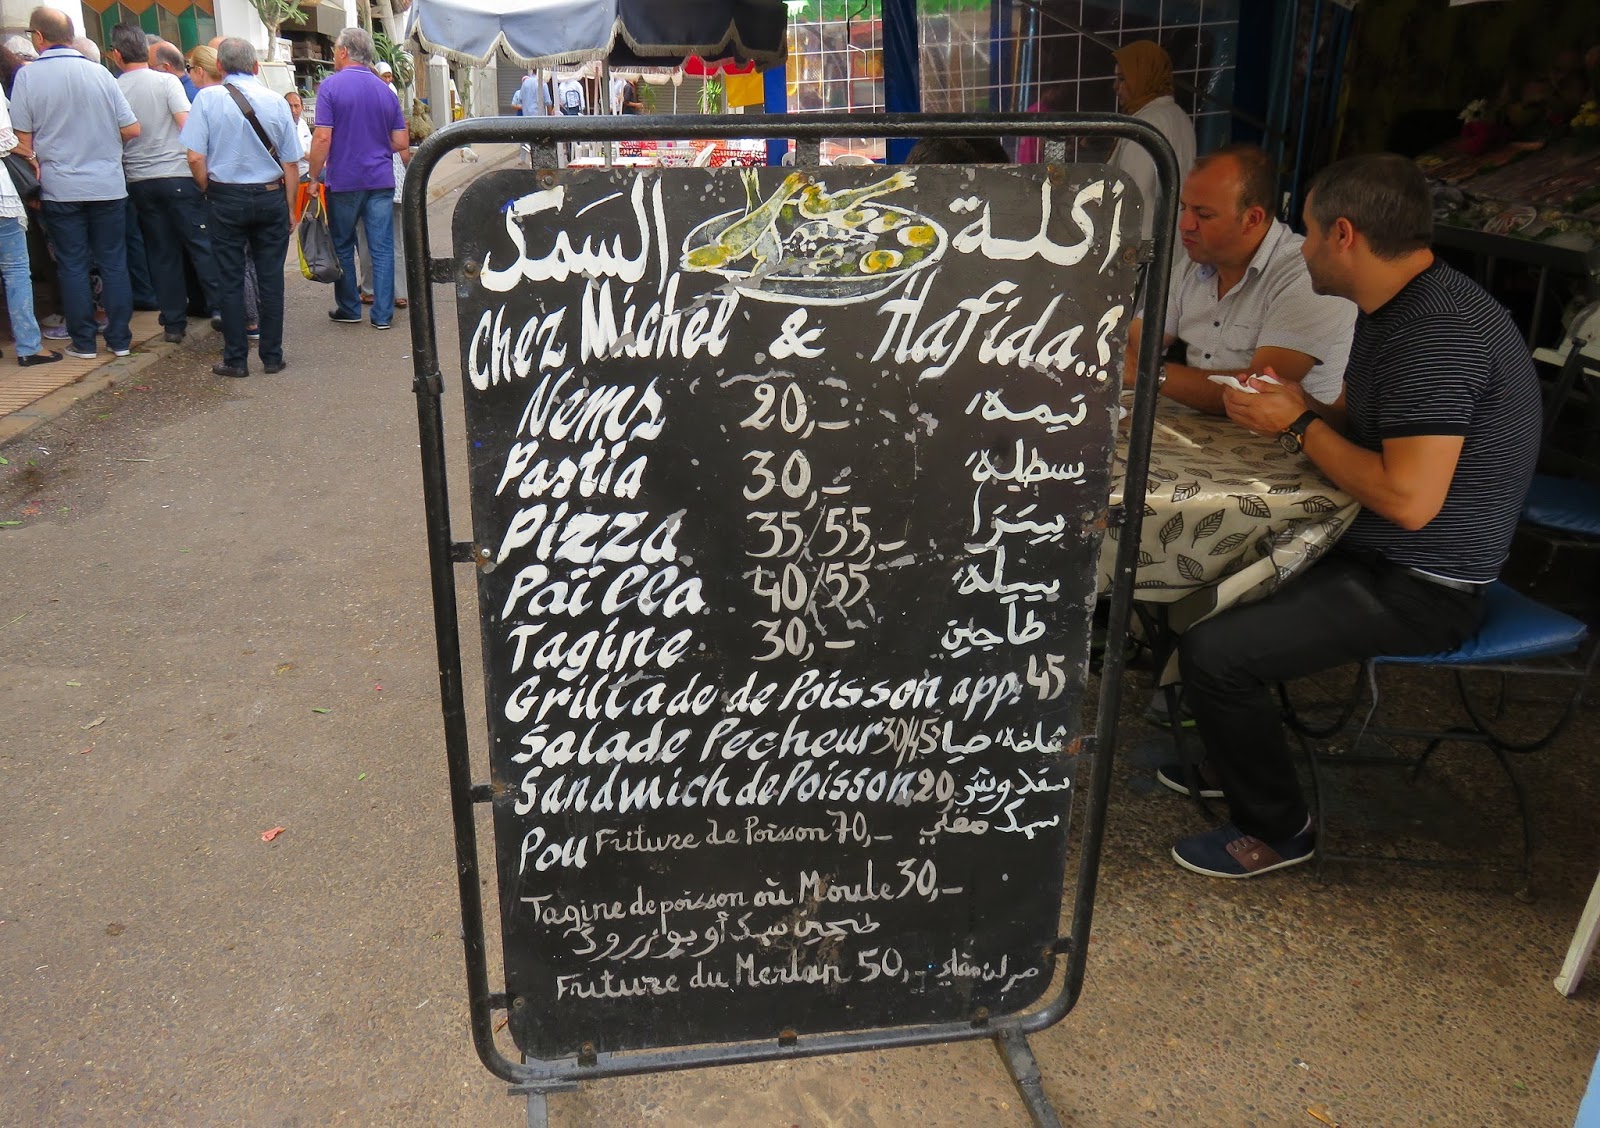 أكلة السَمك
Chez Michel & Hafida..?
Nems 20,- نيمه'
Pastia 30,- بسطيله'
Pizza 35/55,- بيتزا
Païlla 40/55 بييله'
Tagine 30,- طاجين
Grillade de Poisson app. 45
Salade Pecheur 30/45
Sandwich de Poisson 20, سندويش
Pou Friture de Poisson 70,- سمك مقلي
Tagine de poisson où Moule 30,-
طجين سمك أو بوزروگ
Friture du Merlan 50,- مرلان مقلي